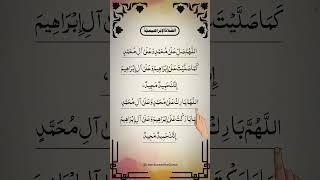 كَمَا صَلَّيْتَ
عَلَى آلِ إِبْرَاهِيمَ
الصلاة الإبراهيمية
اللَّهُمَّ صَلِّ عَلَى مُحَمَّدٍ وَعَلَى آلِ مُحَمَّدٍ
كَمَا صَلَّيْتَ عَلَى إِبْرَاهِيمَ وَعَلَى آلِ إِبْرَاهِيمَ
إِنَّكَ حَمِيدٌ مَجِيدٌ،
اللَّهُمَّ بَارِكْ عَلَى مُحَمَّدٍ وَعَلَى آلِ مُحَمَّدٍ
كَمَا بَارَكْتَ عَلَى إِبْرَاهِيمَ وَعَلَى آلِ إِبْرَاهِيمَ
إِنَّكَ حَمِيدٌ مَجِيدٌ
اللَّهُمَّ بَارِكْ
عَلَى آلِ مُحَمَّدٍ